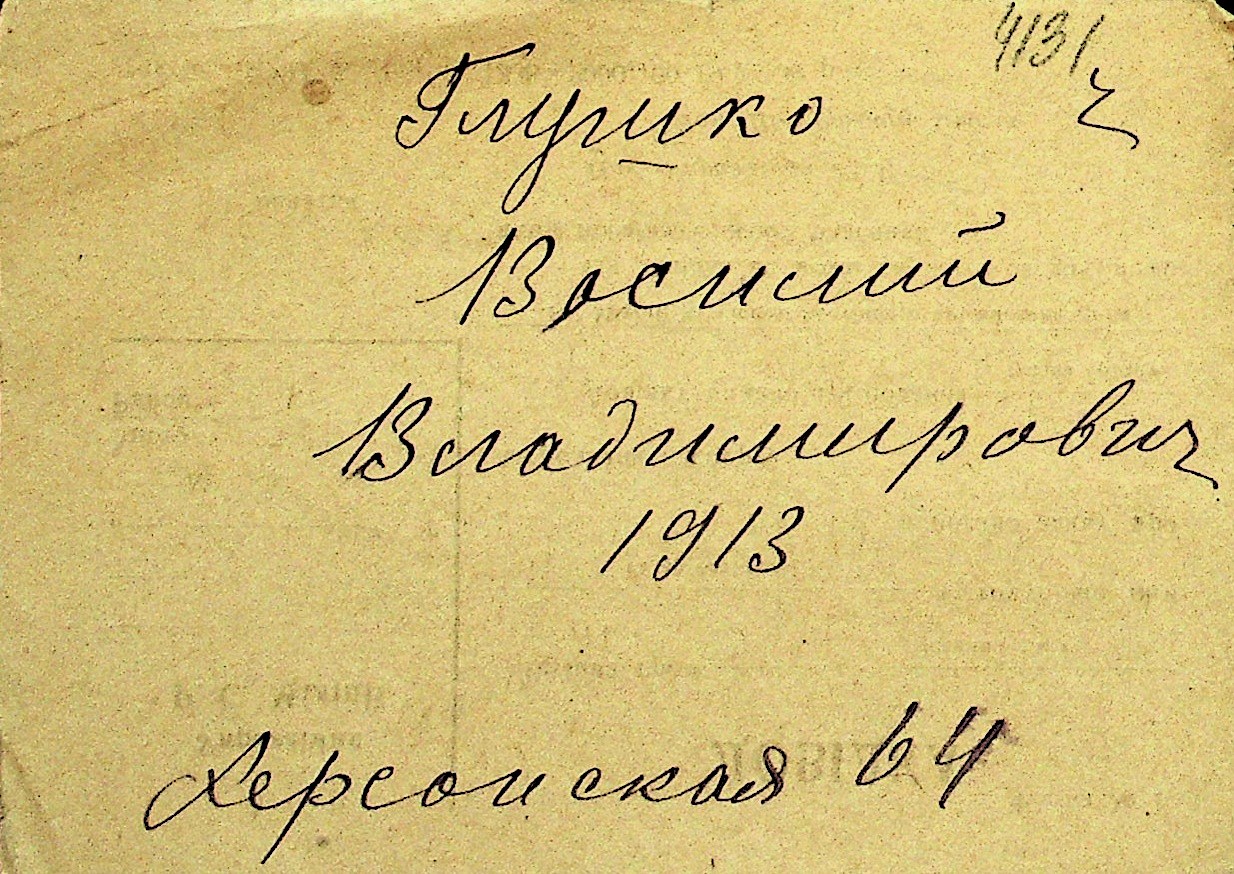 4131
Глушко ч
Василий
Владимирович
1913
Херсонская 64